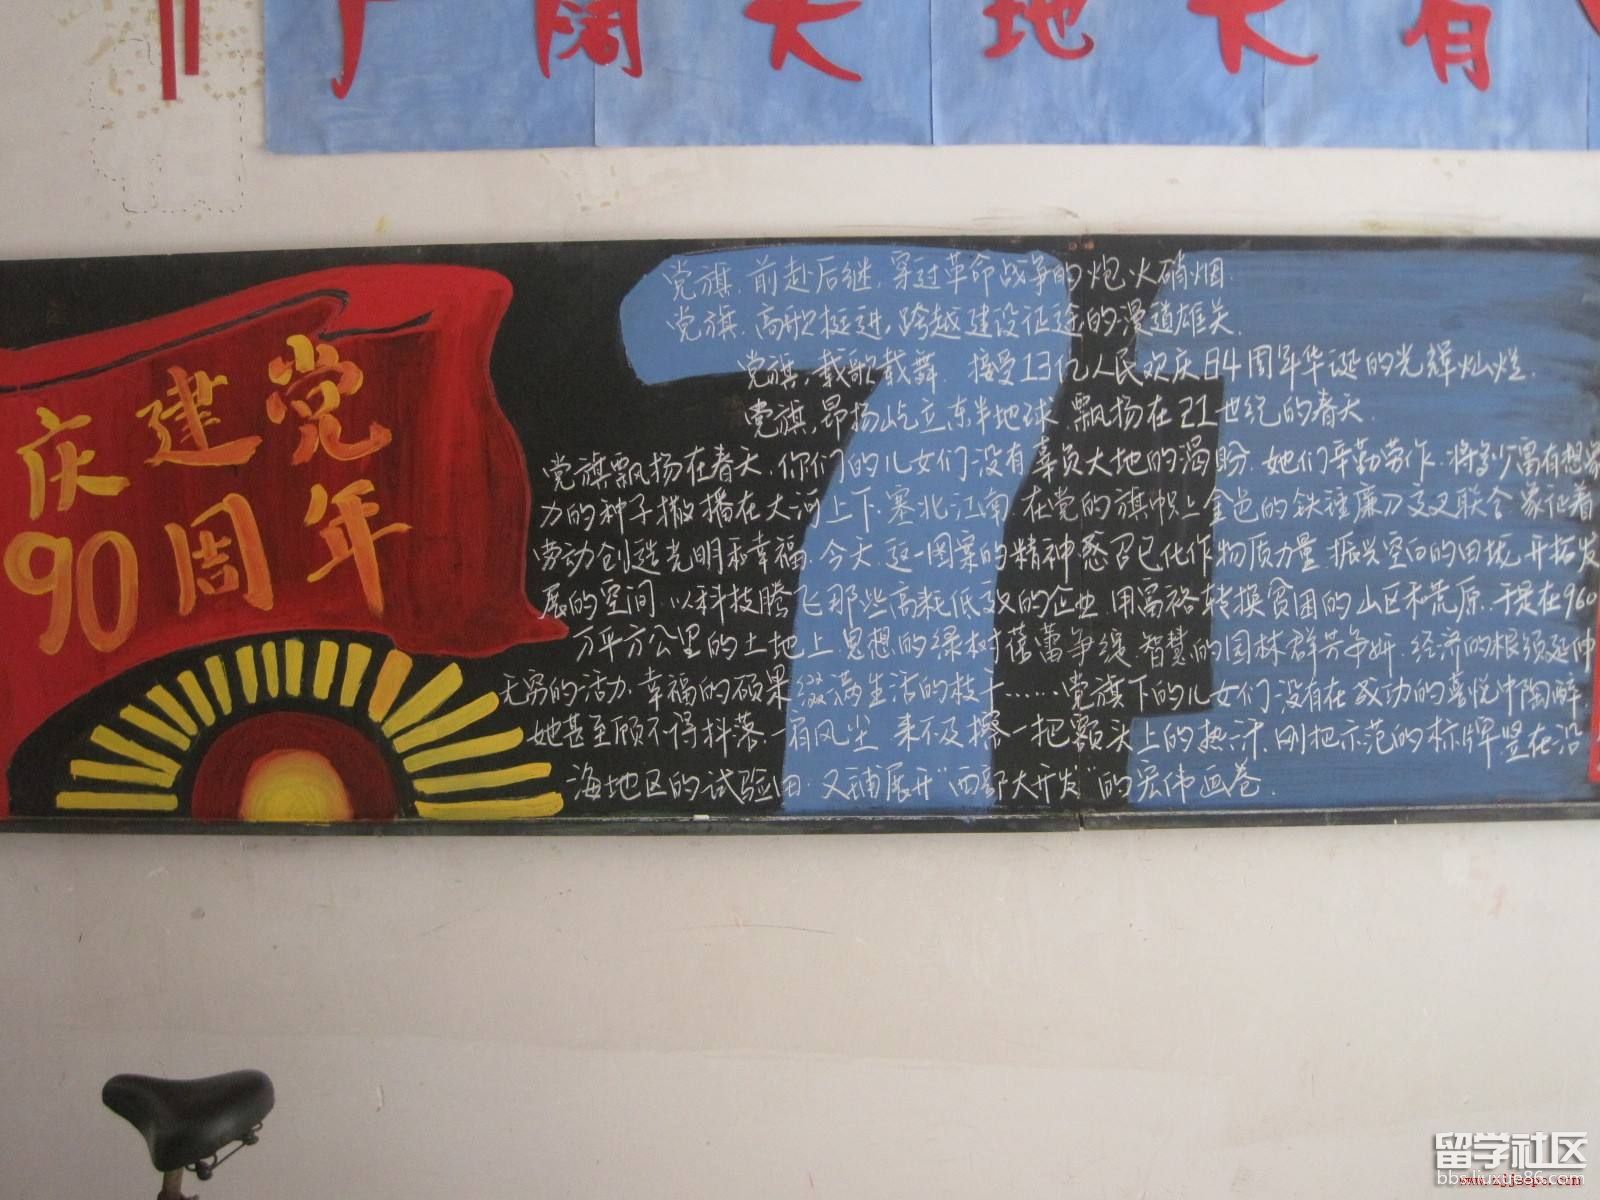 广阔天地大有
庆建党
90周年
党旗，前赴后继，穿过革命战争的炮火硝烟.
党旗，高歌挺进，跨越建设征途的漫道雄关.
党旗，载歌载舞，接受13亿人民欢庆84周年华诞的光辉灿烂.
党旗，昂扬屹立东半地球，飘扬在21世纪的春天.
党旗飘扬在春天，你们的儿女们没有辜负大地的渴盼，她们辛勤劳作，将多少富有想象
力的种子撒播在大河上下，塞北江南，在党的旗帜上金色的铁锤镰刀交叉联合象征着
劳动创造光明和幸福，今天，这一图案的精神感召已化作物质力量，振兴空白的田垅，开拓发
展的空间，以科技腾飞那些高耗低效的企业，用富裕转换贫困的山区和荒原，于是在960
万平方公里的土地上，思想的绿树蓓蕾争绽，智慧的园林群芳争妍，经济的根须延伸
无穷的活力，幸福的硕果缀满生活的枝干……党旗下的儿女们没有在成功的喜悦中陶醉，
她甚至顾不得抖落一肩风尘，来不及擦一把额头上的热汗，刚把示范的标牌竖在沿
海地区的试验田，又铺展开“西部大开发”的宏伟画卷.
留学社区
bbs.liuxue86.com